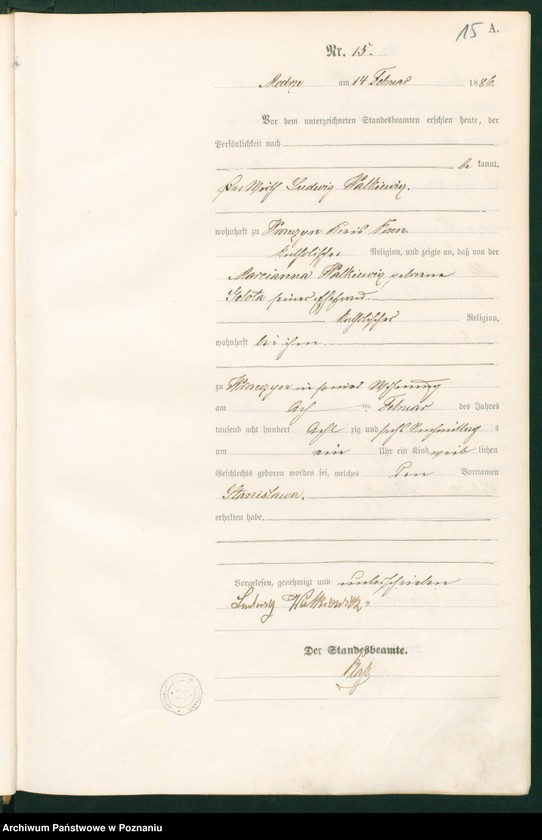 15 A.
Nr. 15.
Modrze am 14 Februar 1886.
Vor dem unterzeichneten Standesbeamten erschien heute, der
Persönlichkeit nach
be kannt,
der Wirth Ludwig Walkiewicz.
wohnhaft zu Kreis
katholischer Religion, und zeigte an, daß von der
Marcianna Walkiewicz geborene
Golota seiner Ehefrau
katholischer Religion,
wohnhaft bei ihm
zu in seiner Wohnung
am ten Februar des Jahres
tausend acht hundert Acht zig und sechs Nachmittag s
um ein Uhr ein Kind weib lichen
Geschlechts geboren worden sei, welches den Vornamen
Stanislawa.
erhalten habe.
Vorgelesen, genehmigt und unterschrieben
Ludwig Walkiewicz
Der Standesbeamte.
Archiwum Państwowe w Poznaniu